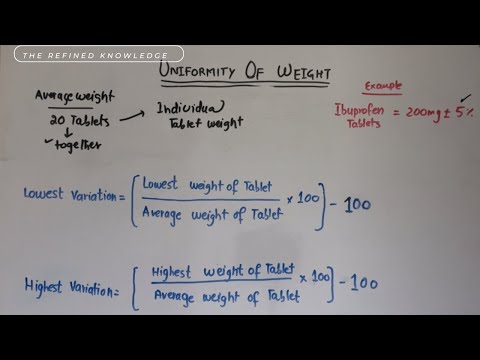 THE REFINED KNOWLEDGE
UNIFORMITY OF WEIGHT
Average weight
20 Tablets → Individual
Tablet weight
↓
✓together
Example
Ibuprofen = 200mg ± 5%
Tablets
✓
Lowest Variation = [Lowest weight of Tablet / Average weight of Tablet × 100] - 100
Highest Variation = [Highest weight of Tablet / Average weight of Tablet × 100] - 100